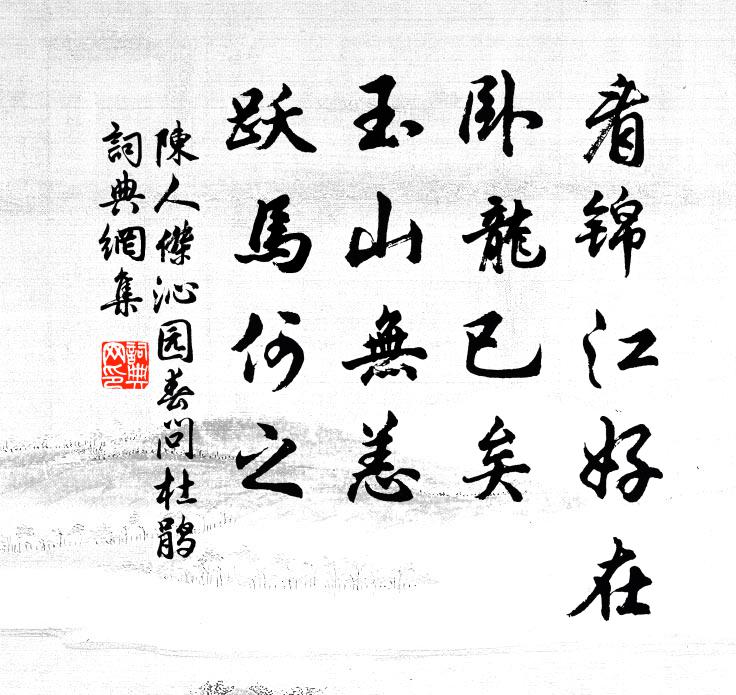 看锦江好在
卧龍已矣
玉山無恙
跃馬何之
陳人傑沁园春问杜鹃
詞典網集
詞典网印